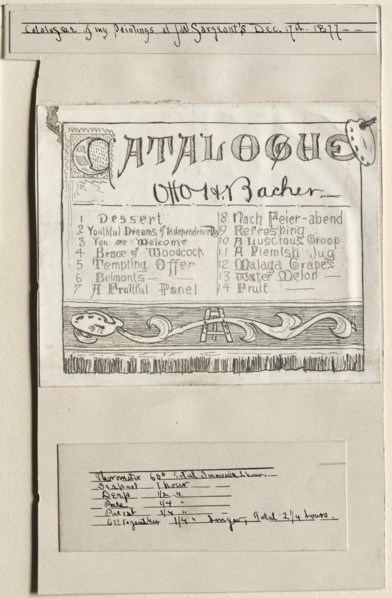 Catalogue of my Paintings at J.W. Sargeant's Dec. 17th. 1877--
CATALOGUE
Otto H. Bacher
1 Dessert
2 Youthful Dreams of Independence Day
3 You are Welcome
4 Brace of Woodcock
5 Tempting Offer
6 Belmonts
7 A Fruitful Panel
8 Nach Feier-abend
9 Refreshing
10 A Luscious Group
11 A Flemish Jug
12 Malaga Grapes
13 Water Melon
14 Fruit
Thermometer 60° Total 1 hour
1 hour
Deep 1/2 "
1/4 "
1/4 "
All together 1/4 " longer, Total 2 1/4 hours.